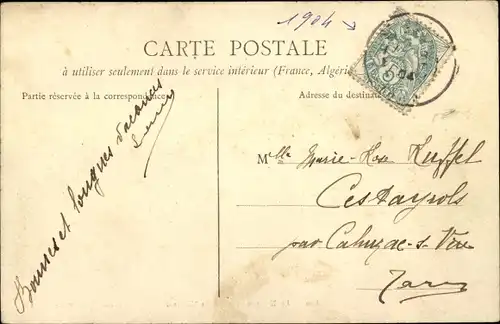 1904
CARTE POSTALE
à utiliser seulement dans le service intérieur (France, Algérie
Partie réservée à la correspondance
Adresse du destinat
Bonnes et longues vacances
Mlle Marie-Rose Ruffel
Cestayrols
par Cahuzac-s-Vère
Tarn